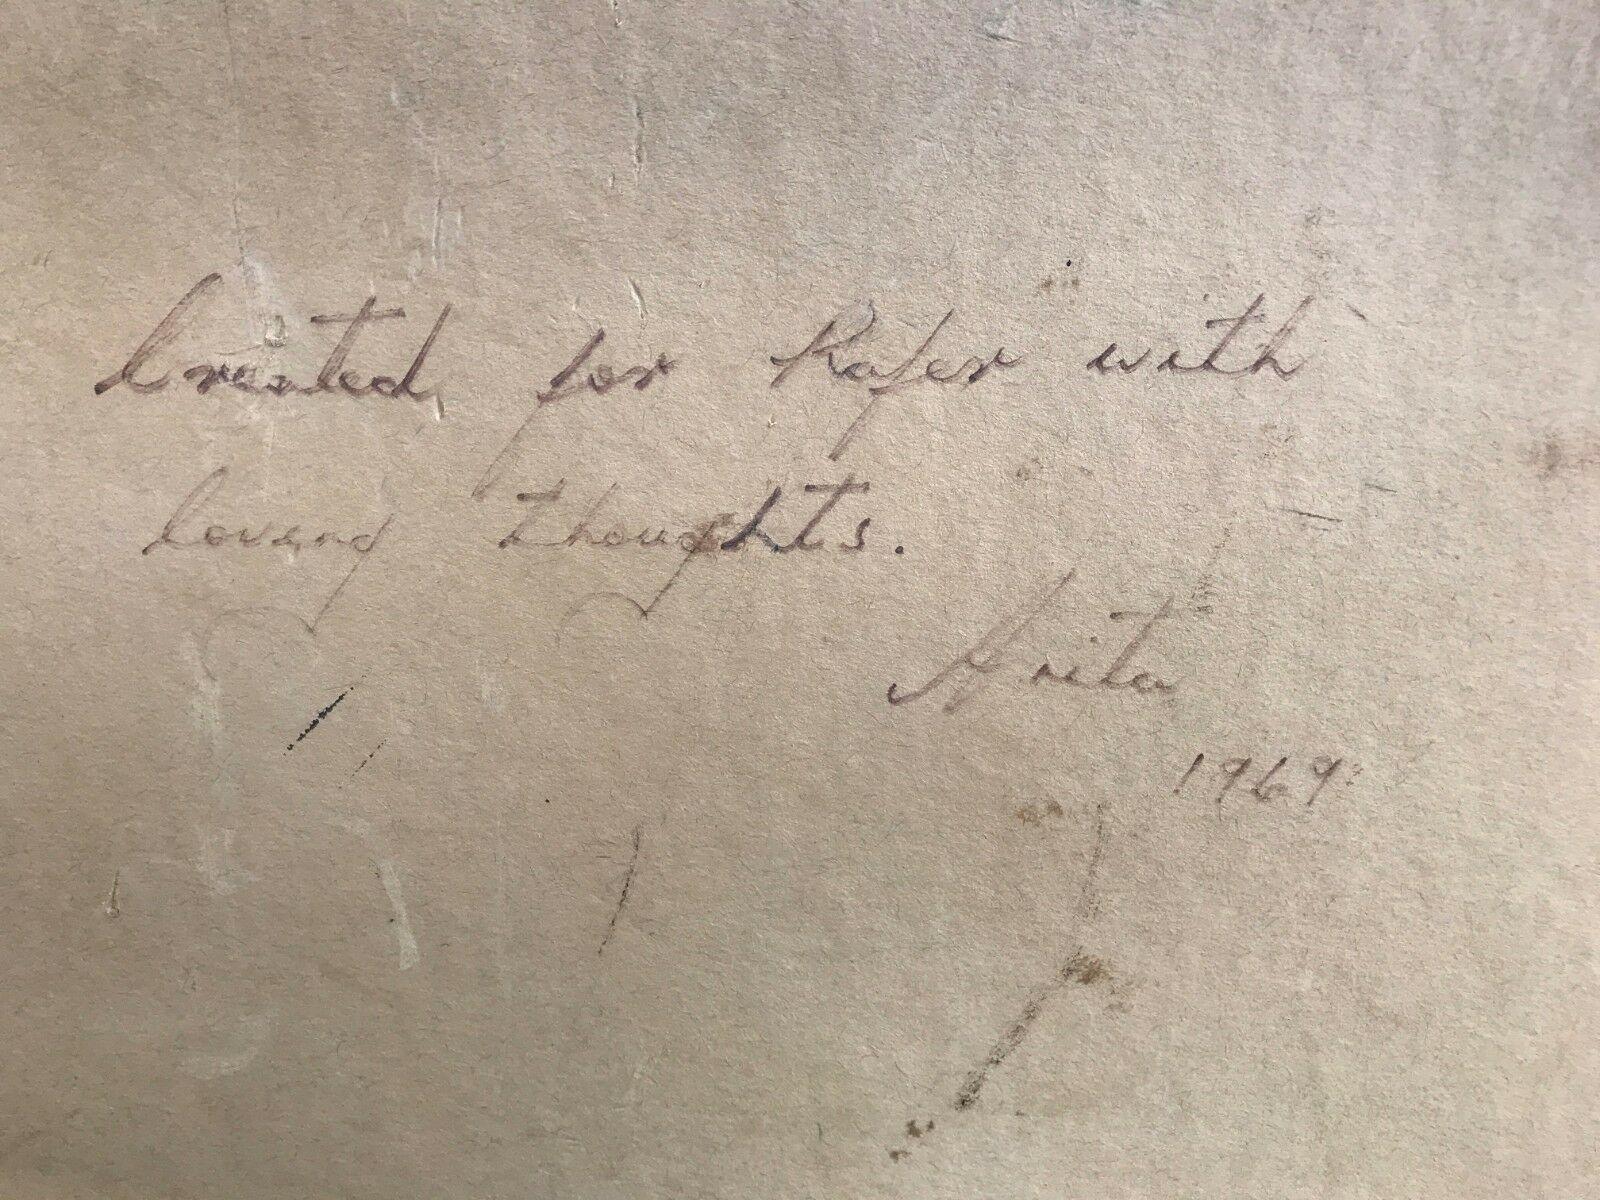 Created for Rafer with
loving thoughts.
Anita
1969